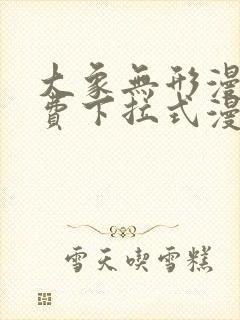 大象無形漫
費下拉式漫
雪天喫雪糕